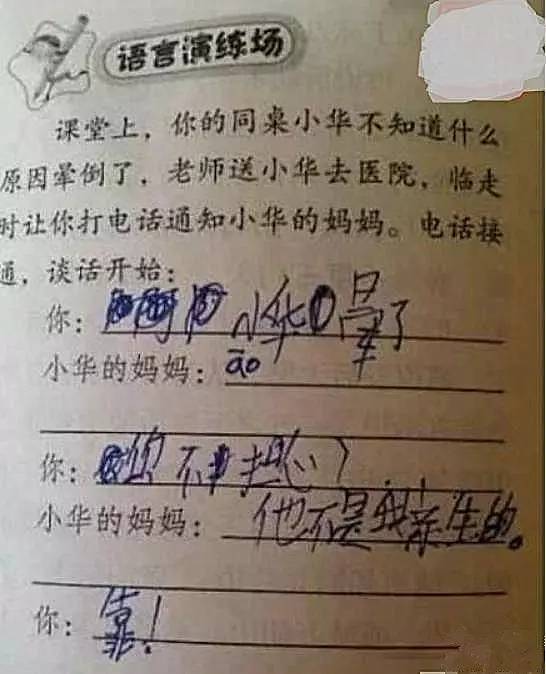 语言演练场
课堂上，你的同桌小华不知道什么
原因晕倒了，老师送小华去医院，临走
时让你打电话通知小华的妈妈。电话接
通，谈话开始：
你：小华晕了
小华的妈妈：āo
你：您不担心？
小华的妈妈：他不是我亲生的。
你：靠！